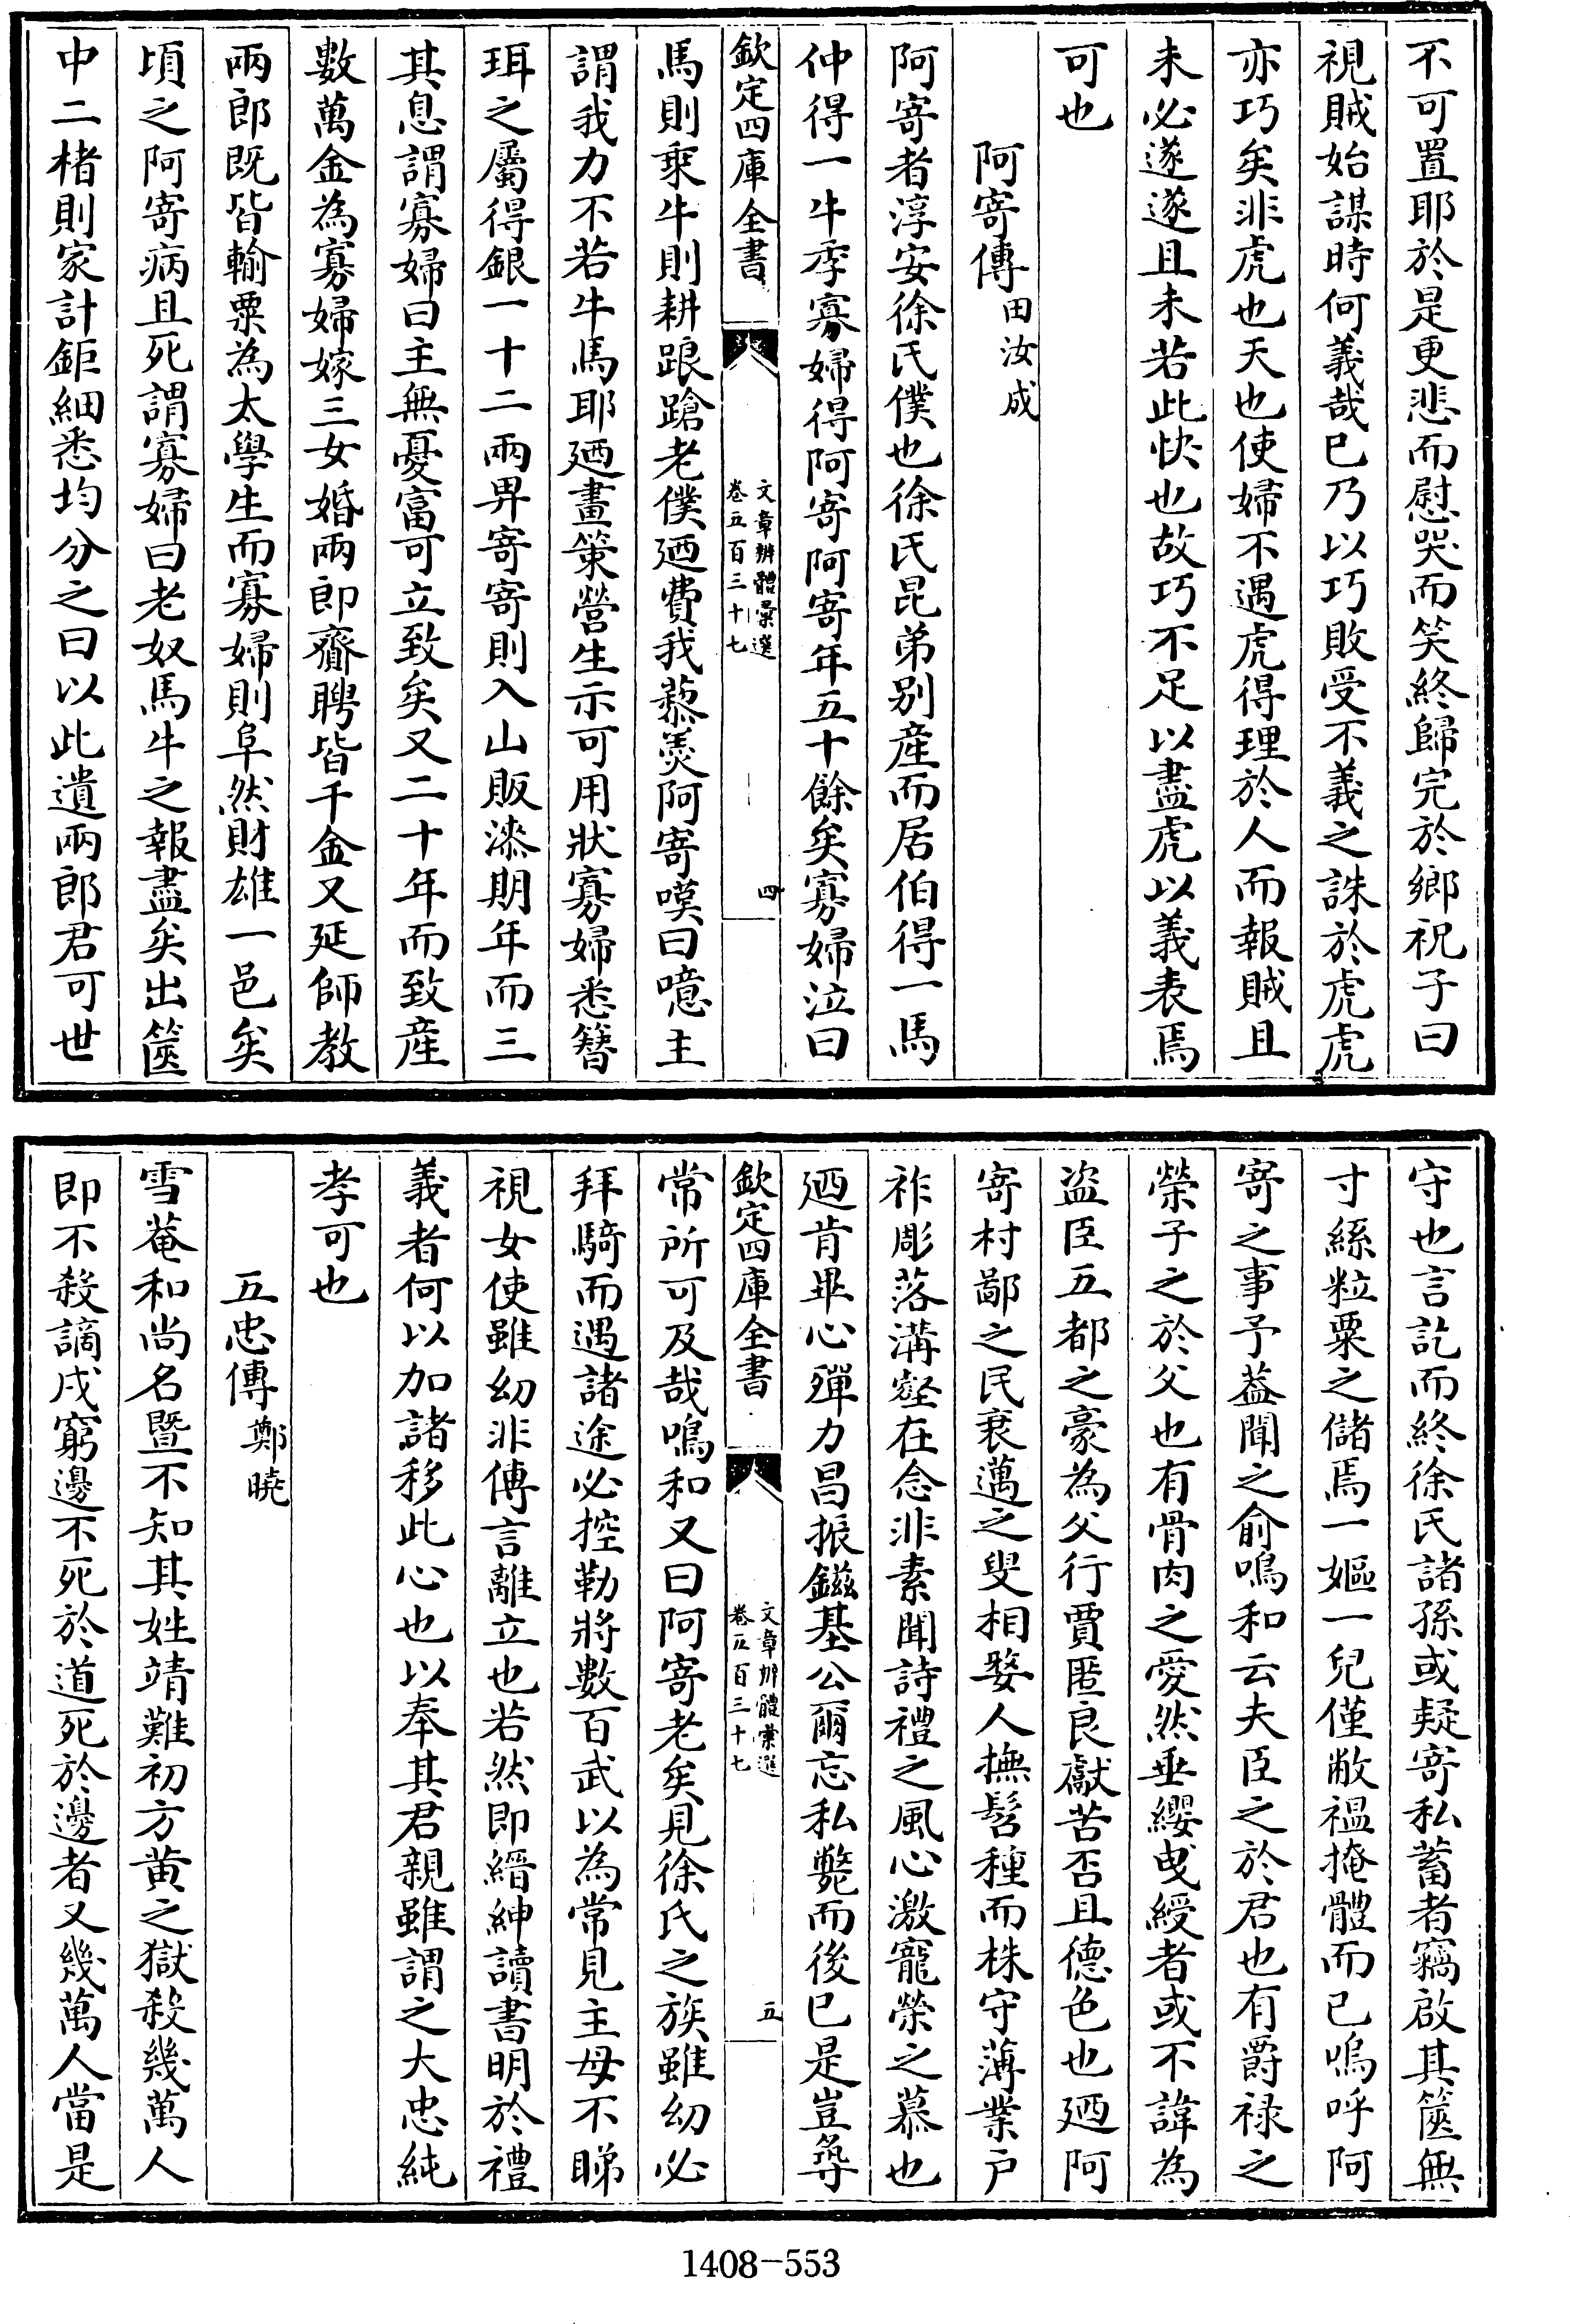 不可置耶於是更悲而慰哭而笑終歸完於鄉祝子曰
視賊始謀時何義哉已乃以巧敗受不義之誅於虎虎
亦巧矣非虎也天也使婦不遇虎得理於人而報賊且
未必遂遂且未若此快也故巧不足以盡虎以義表焉
可也
阿寄傳田汝成
阿寄者淳安徐氏僕也徐氏昆弟别産而居伯得一馬
仲得一牛季寡婦得阿寄阿寄年五十餘矣寡婦泣曰
欽定四庫全書
文章辨體彙選
卷五百三十七
四
馬則乘牛則耕踉蹌老僕廼費我藜羮阿寄嘆曰噫主
謂我力不若牛馬耶廼畫策營生示可用狀寡婦悉簪
珥之屬得銀一十二兩畀寄寄則入山販漆期年而三
其息謂寡婦曰主無憂富可立致矣又二十年而致産
數萬金為寡婦嫁三女婚兩郎齎聘皆千金又延師教
兩郎既皆輸粟為太學生而寡婦則阜然財雄一邑矣
頃之阿寄病且死謂寡婦曰老奴馬牛之報盡矣出篋
中二楮則家計鉅細悉均分之曰以此遺兩郎君可世
守也言訖而終徐氏諸孫或疑寄私蓄者竊啟其篋無
寸絲粒粟之儲焉一嫗一兒僅敝褞掩體而已嗚呼阿
寄之事予葢聞之俞鳴和云夫臣之於君也有爵禄之
榮子之於父也有骨肉之愛然垂纓曵綬者或不諱為
盜臣五都之豪為父行賈匿良獻苦否且德色也廼阿
寄村鄙之民衰邁之叟相嫠人撫髫種而株守薄業户
祚彫落溝壑在念非素聞詩禮之風心激寵榮之慕也
廼肯畢心殫力昌振鎡基公爾忘私斃而後已是豈尋
欽定四庫全書
文章辨體彙選
卷五百三十七
五
常所可及哉鳴和又曰阿寄老矣見徐氏之族雖幼必
拜騎而遇諸途必控勒將數百武以為常見主母不睇
視女使雖幼非傳言離立也若然即縉紳讀書明於禮
義者何以加諸移此心也以奉其君親雖謂之大忠純
孝可也
五忠傳鄭曉
雪菴和尚名暨不知其姓靖難初方黄之獄殺幾萬人
即不殺謫戍窮邊不死於道死於邊者又幾萬人當是
1408-553